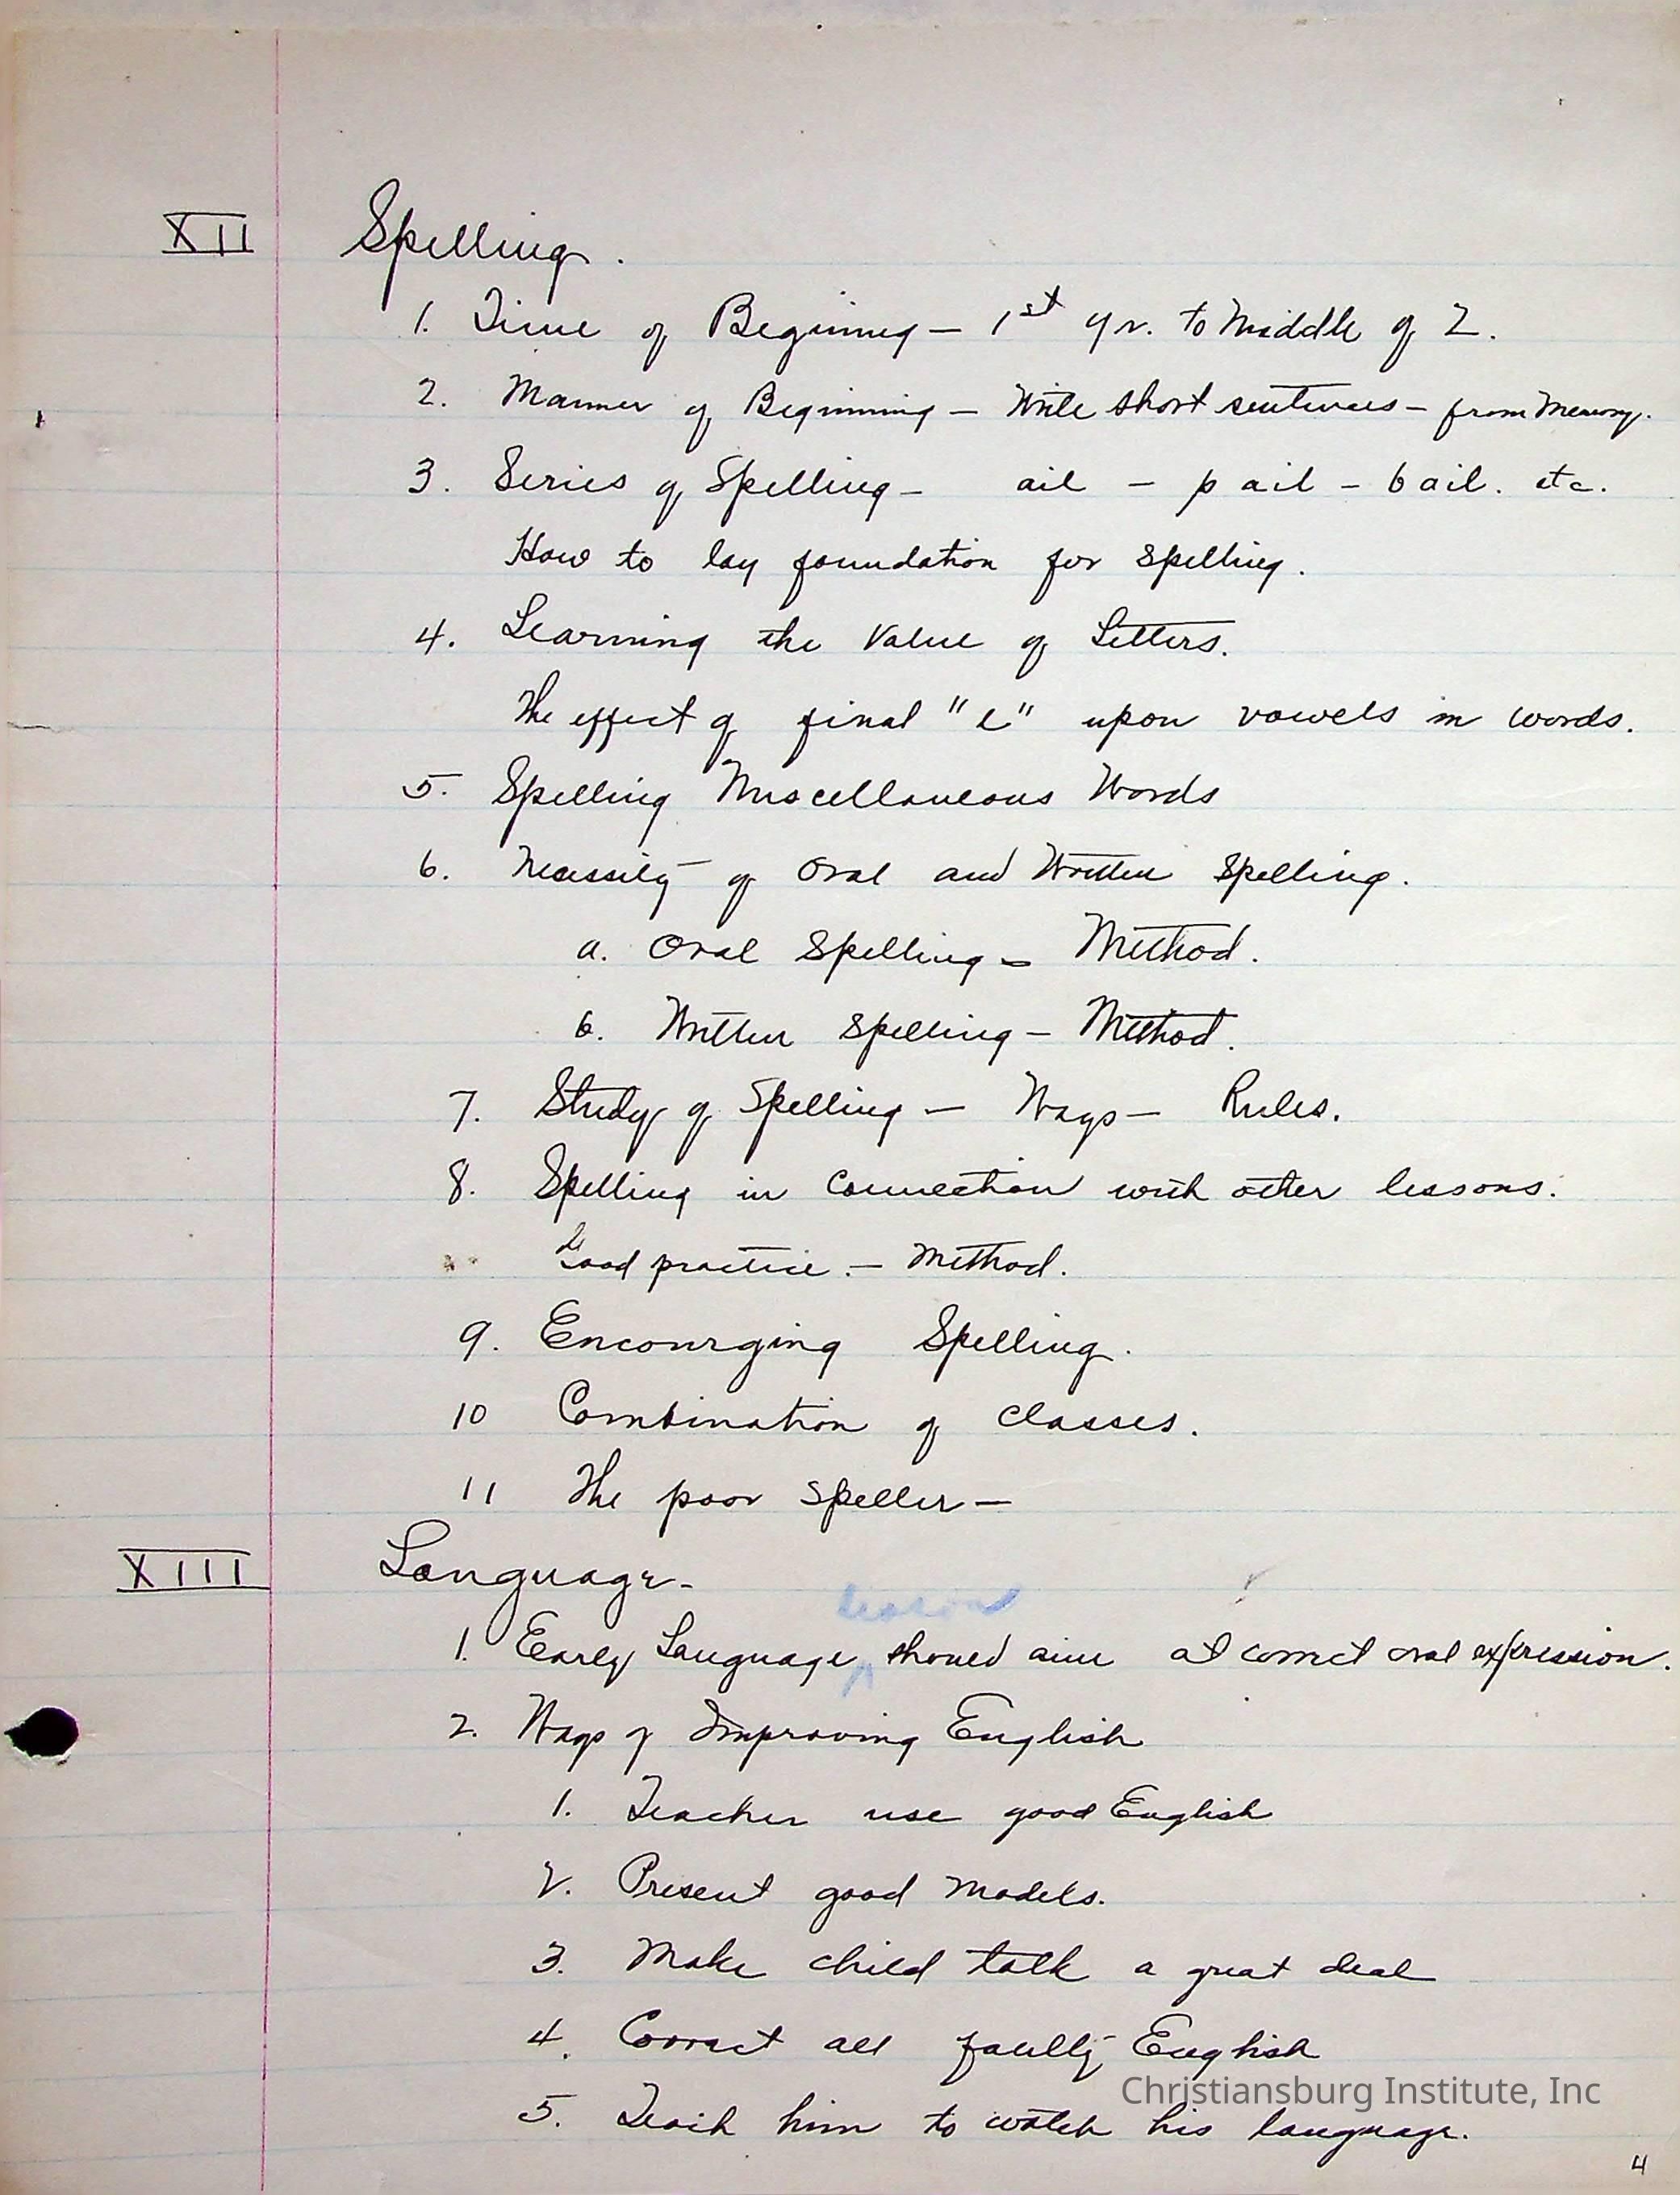 XII Spelling.
1. Time of Beginning — 1st yr. to Middle of 2.
2. Manner of Beginning — Write short sentences — from Memory.
3. Series of Spelling — ail — pail — bail. etc.
How to lay foundation for spelling.
4. Learning the Value of Letters.
The effect of final "e" upon vowels in words.
5. Spelling Miscellaneous Words
6. Necessity of Oral and Written Spelling.
a. Oral Spelling — Method.
b. Written Spelling — Method.
7. Study of Spelling — Ways — Rules.
8. Spelling in Connection with other lessons.
Good practice. — Method.
9. Encourging Spelling.
10 Combination of classes.
11 The poor speller —
XIII Language —
lesson
1. Early Language should aim at correct oral expression.
2. Ways of Improving English
1. Teacher use good English
2. Present good Models.
3. Make child talk a great deal
4. Correct all faulty English
Christiansburg Institute, Inc
5. Teach him to watch his language.
4